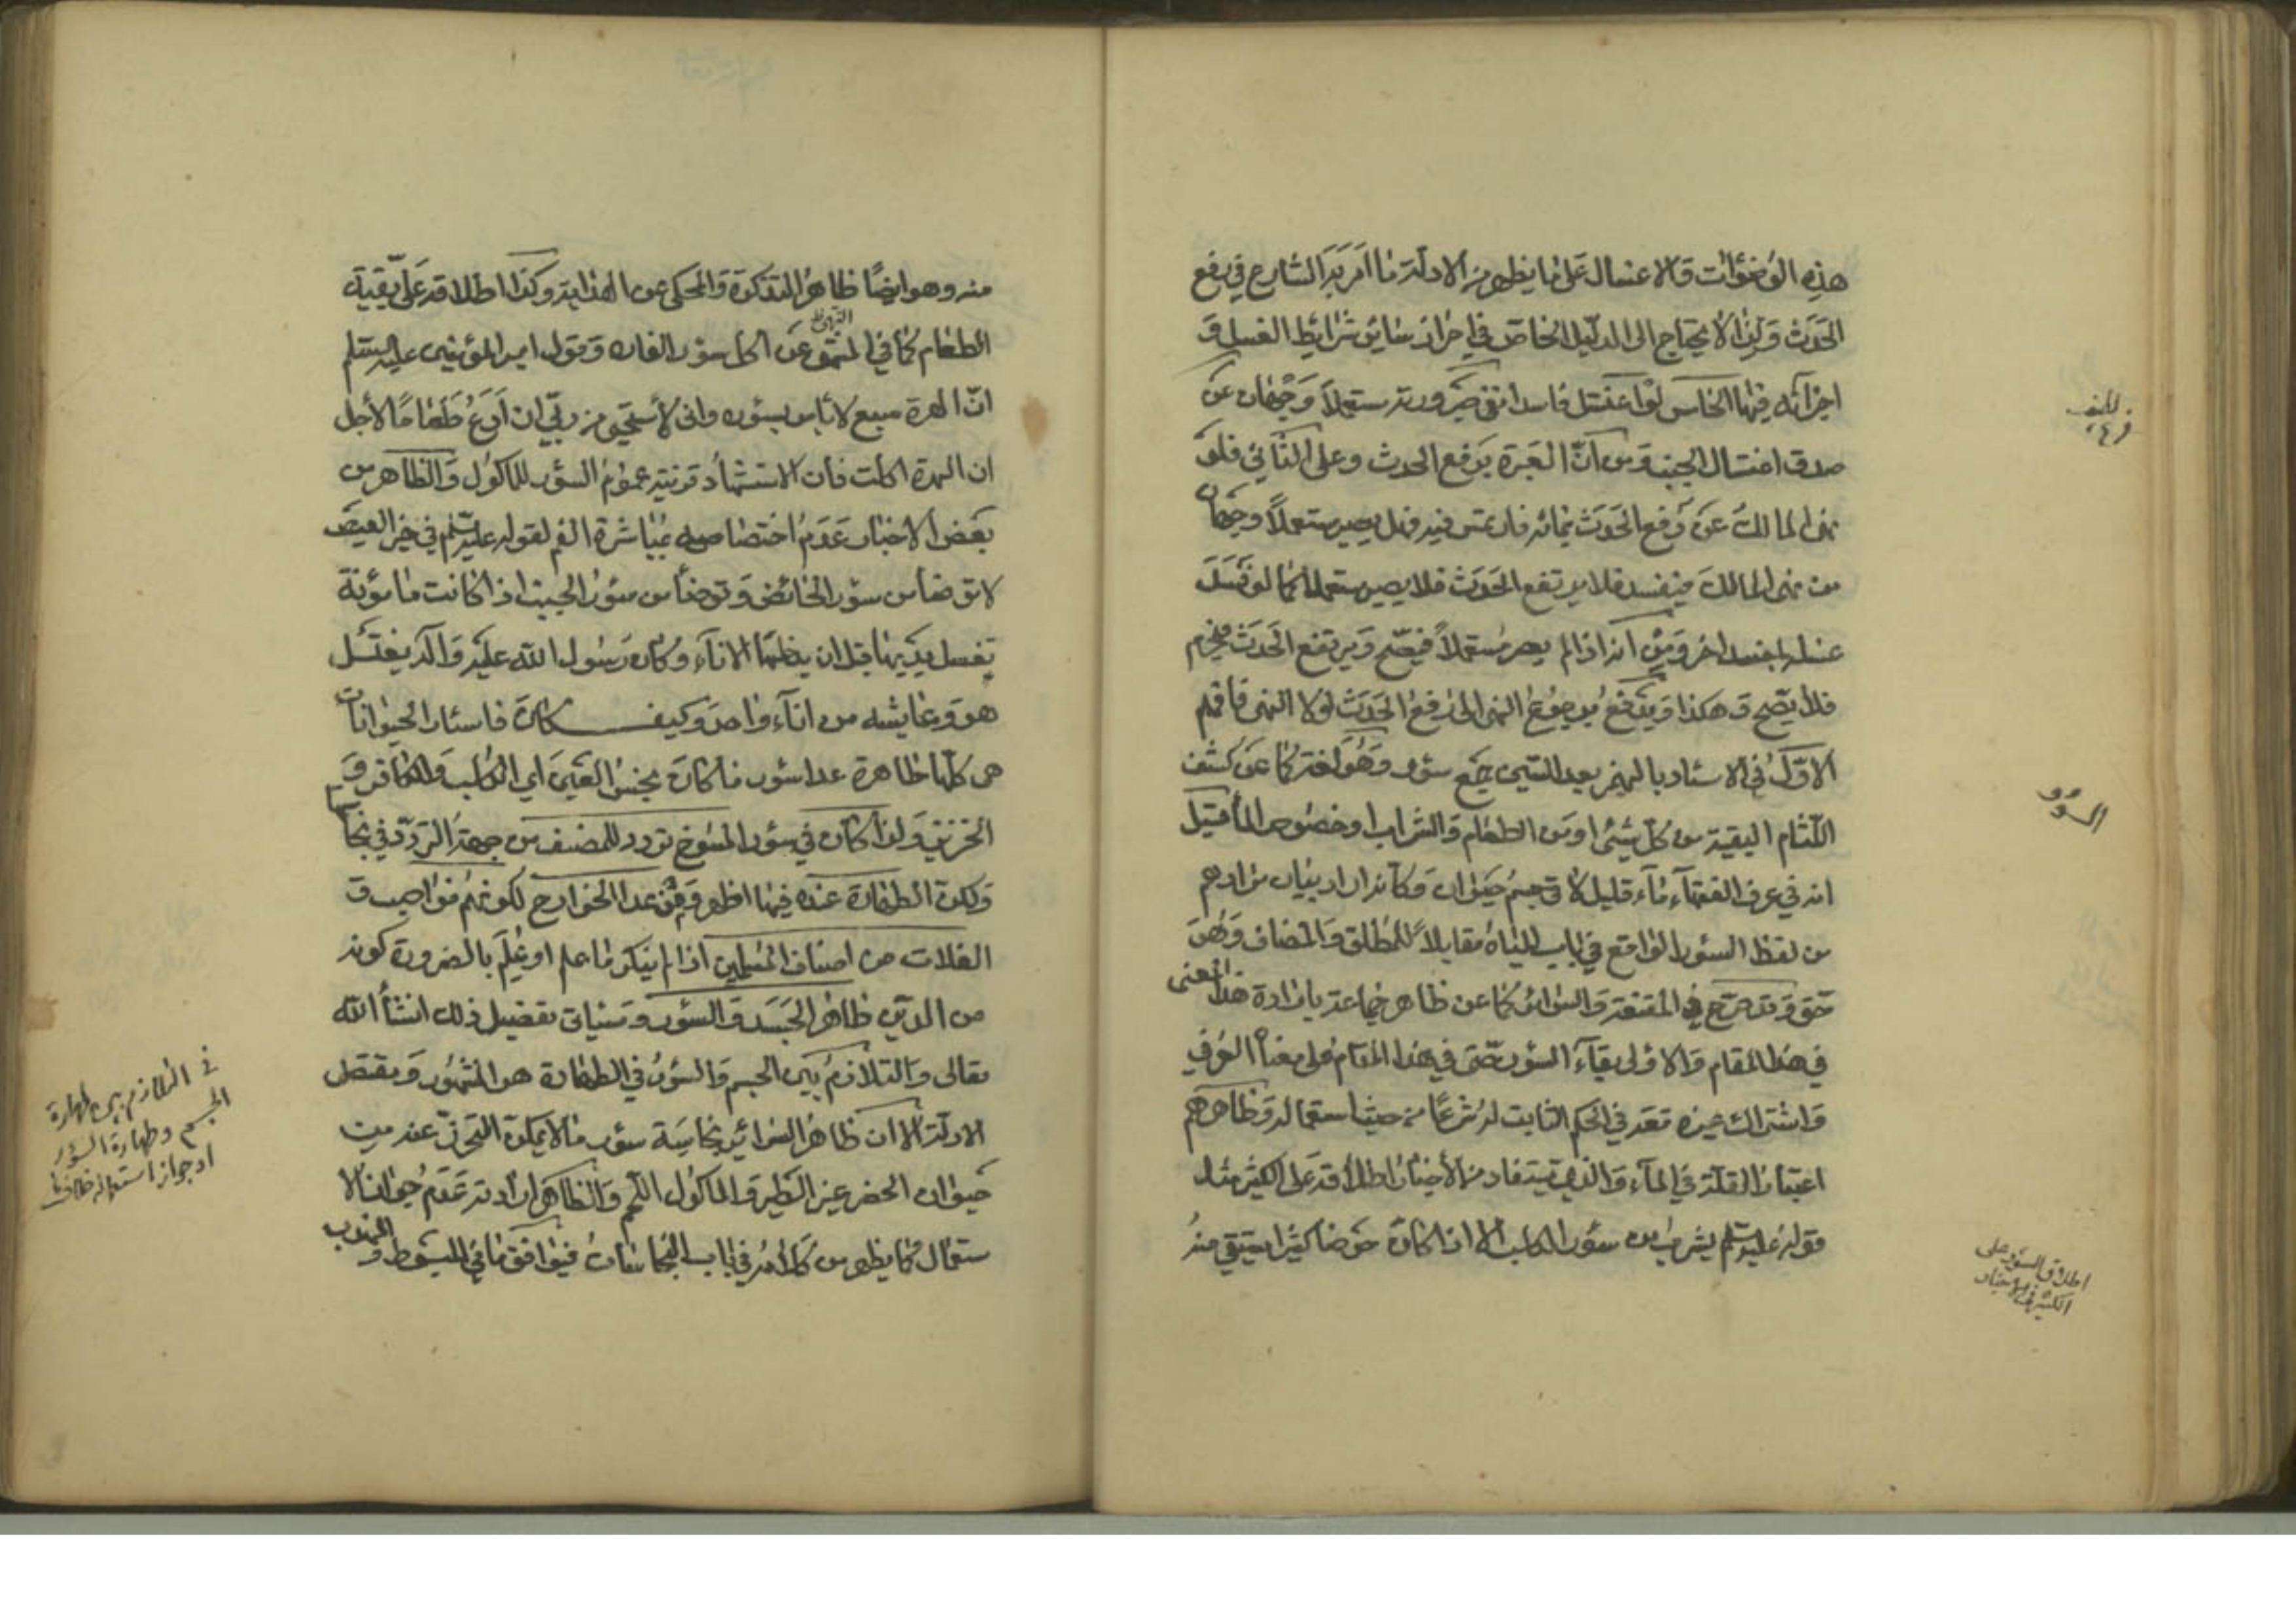 هذه الوضوآت والاغسال على ما يظهر من الادلة ما امر به الشارع في رفع
الحدث ولذا لا يحتاج الى الدليل الخاص في احراز ساير شرايط الغسل و
اجزائه فيها الخامس لو اغتسل فاسدا ففي صيرورته مستعملا وجهان من
صدق اغتسال الجنب ومن انّ العبرة برفع الحدث وعلى الثاني فلو
نهى المالك عن رفع الحدث بمائه فارتمس فيه فهل يصير مستعملا وجهان
من نهى المالك فيفسد فلا يرتفع الحدث فلا يصير مستعملا كما لو غسل
غسله بمفسد اخر ومن انه اذا لم يصر مستعملا فيصح ويرتفع الحدث فيحرم
فلا يصح وهكذا ويندفع برجوع النهي الى رفع الحدث لولا النهي فافهم
الاول في الاسئار بالهمز بعد السين جمع سؤر وهو لغة كما عن كشف
اللثام البقية من كل شيء او من الطعام والشراب او خصوص الماء قيل
انه في عرف الفقهاء ماء قليل لاقى جسم حيوان وكانه اراد بيان مرادهم
من لفظ السؤر الواقع في باب المياه مقابلا للمطلق والمضاف وهو
حق وقد صرح في المقنعة والسرائر كما عن ظاهر جماعة بارادة هذا المعنى
في هذا المقام والاولى بقاء السؤر حتى في هذا المقام على معناه العرفي
واشتراك غيره معه في الحكم الثابت له شرعا من حيث استعماله وظاهرهم
اعتبار القلة في الماء والذي يستفاد من الاخبار اطلاقه على الكثير مثل
قوله عليه السلم يشرب من سؤر الكلب الا ان كان حوضا كثيرا يستقى منه
السؤر
اطلاق السؤر على
الكثير في الاخبار
منه وهو ايضا ظاهر التذكرة والمحكى عن الهداية وكذا اطلاقه على بقية
الطعام كما في المتفق النهي عن اكل سؤر الفاره وقول امير المؤمنين عليه السلم
انّ الهرة سبع لا باس بسؤره واني لأستحيي من ربّي ان ادع طعاما لأجل
ان الهرة اكلت فان الاستشهاد قرينة عموم السؤر للماكول والظاهر من
بعض الاخبار عدم اختصاصه بمباشرة الفم لقوله عليه السلم في خبر العيص
لا توضأ من سؤر الحائض وتوضأ من سؤر الجنب اذا كانت مأمونة
تغسل يديها قبل ان يدخلهما الاناء وكان رسول الله عليه وآله يغتسل
هو وعايشه من اناء واحد وكيف كان فاسئار الحيوانات
هى كلها طاهرة عدا سؤر ما كان نجس العين اي الكلب والكافر و
الخنزير ولذا كان في سؤر المسوخ تردد للمصنف من جهة التردد في نجاستها
ولكن الطهارة عنده فيها اظهر وفيمن عدا الخوارج لكونهم نواصب و
الغلات من اصناف المسلمين اذا لم ينكر ما علم او عُلِم بالضرورة كونه
من الدين طاهر الجسد والسؤر وسياتى تفصيل ذلك انشأ الله
تعالى والتلازم بين الجسم والسؤر في الطهارة هو المشهور ومقتضى
الادلة الا ان ظاهر السرائر نجاسة سؤر ما لا يمكن التحرز عنه من
حيوان الحضر غير الطير والماكول اللحم والظاهر ارادته عدم جواز الا
ستعمال كما يظهر من كلامه في باب النجاسات فيوافق ما في المبسوط والمهذب
في التلازم بين طهارة
الجسم وطهارة السؤر
او جواز استعماله